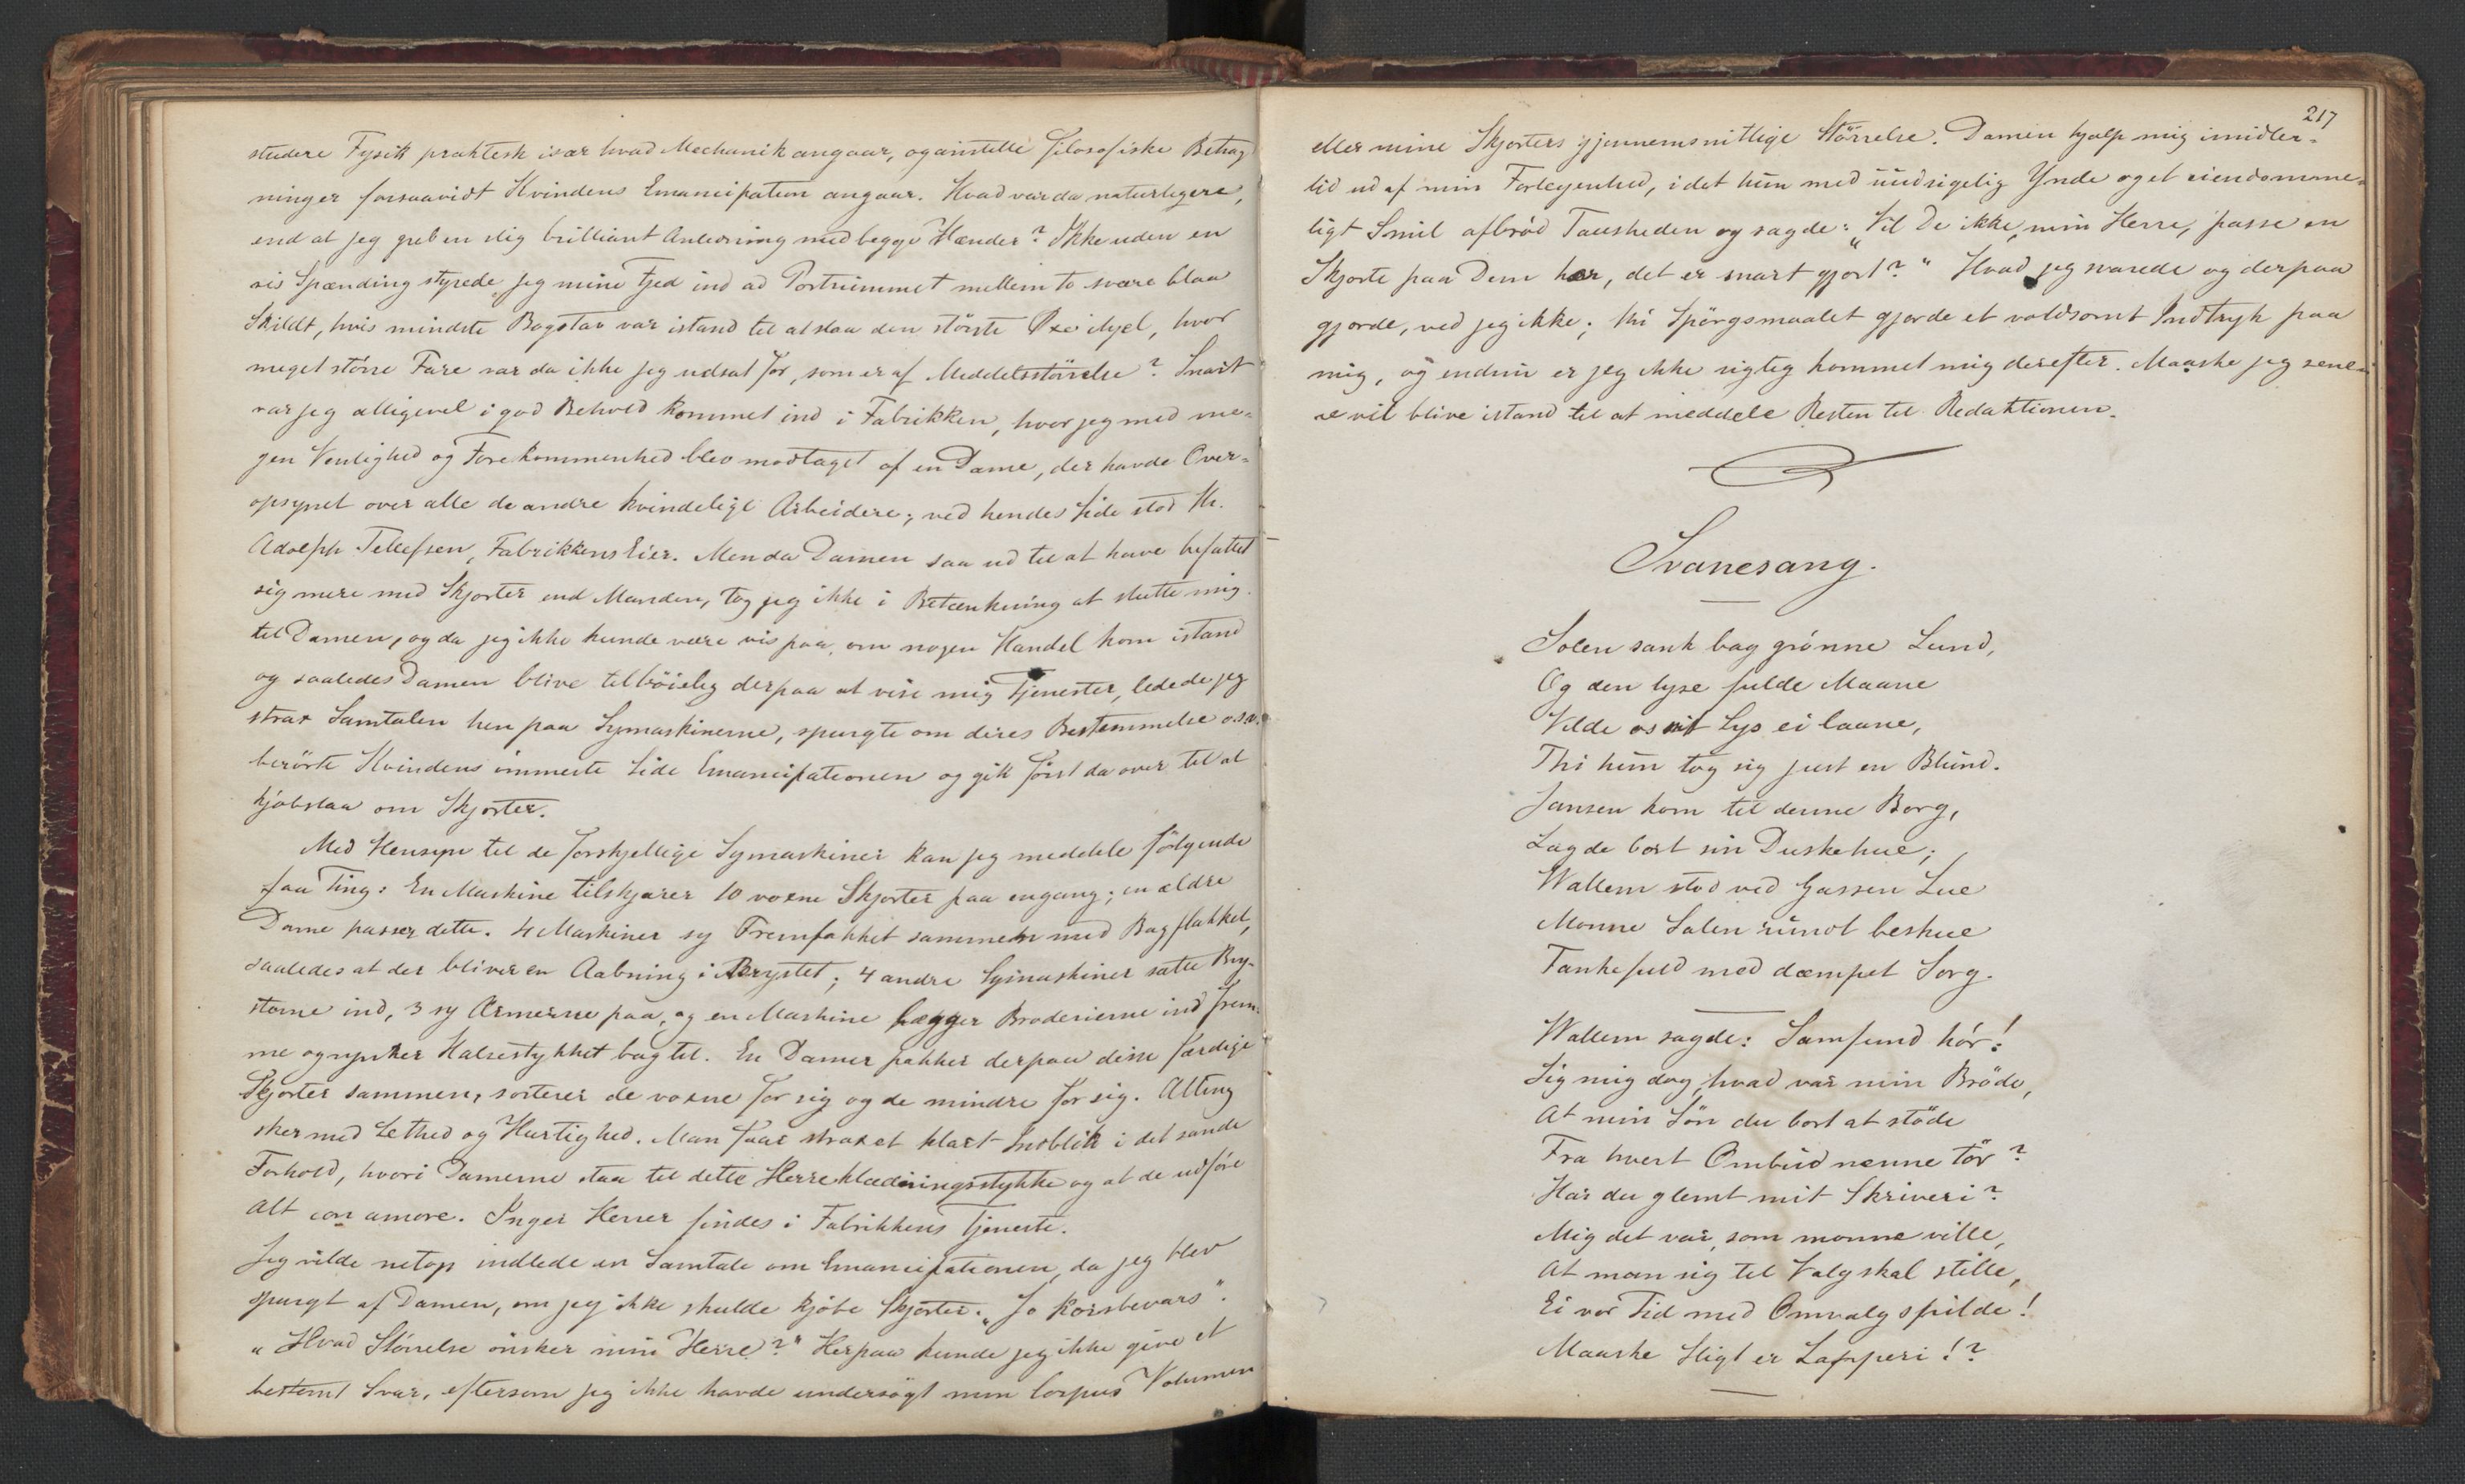 studere Fysik praktesk især hvad Mechanik angaar, og anstille filosofiske Betrag
ninger forsaavidt Kvindens Emancipation angaar. Hvad var da naturligere,
end at jeg greb en slig brilliant Anledning med begge Hænder? Ikke uden en
vis Spænding styrede jeg mine Fjed ind ad Portrummet mellem to svære blaa
Skildt, hvis mindste Bogstav var istand til at slaa den störste Oxe ihjel, hvor
meget större Fare var da ikke jeg udsat for, som er af Middelsstörrelse? Snart
var jeg alligevel i god Behold kommet ind i Fabrikken, hvor jeg med me-
gen Venlighed og Forekommenhed blev modtaget af en Dame, der havde Over-
opsynet over alle de andre kvindelige Arbeidere; ved hendes Side stod Hr.
Adolph Tellefsen, Fabrikkens Eier. Men da Damen saa ud til at have befattet
sig mere med Skjorter end Manden, tog jeg ikke i Betænkning at slutte mig
til Damen, og da jeg ikke kunde være vis paa, om nogen Handel kom istand
og saaledes Damen blive tilböielig derpaa at vise mig Tjenester, ledede jeg
strax Samtalen hen paa Symaskinerne, spurgte om deres Bestemmelse o.s.v.
berörte Kvindens ömmeste Side Emancipationen og gik först da over til at
kjöbslaa om Skjorter.
Med Hensyn til de forskjellige Symaskiner kan jeg meddele fölgende
faa Ting: En Maskine tilskjærer 10 voxne Skjorter paa engang; en ældre
Dame passer dette. 4 Maskiner sy Fremflakket sammen med Bagflakket,
saaledes at der bliver en Aabning i Brystet; 4 andre Symaskiner sætte Bry-
sterne ind, 3 sy Ærmerne paa, og en Maskine lægger Broderierne ind frem-
me og rynker Halsestykket bag til. En Damer pakker derpaa disse færdige
Skjorter sammen, sorterer de voxne for sig og de mindre for sig. Alting
sker med Lethed og Hurtighed. Man faar strax et klart Indblik i det sande
Forhold, hvori Damerne staa til dette Herreklædningsstykke og at de udföre
Alt con amore. Ingen Herrer findes i Fabrikkens Tjeneste.
Jeg vilde netop indlede en Samtale om Emancipationen, da jeg blev
spurgt af Damen, om jeg ikke skulde kjöbe Skjorter. „Jo korsbevars".
„Hvad Störrelse önsker min Herre?" Herpaa kunde jeg ikke give et
bestemt Svar, eftersom jeg ikke havde undersögt min Corpus Volumen
217
eller mine Skjorters gjennemsnitlige Störrelse. Damen hjalp mig imidler-
tid ud af min Forlegenhed, idet hun med uudsigelig Ynde og et eiendomme-
ligt Smil afbröd Tausheden og sagde: „Vil De ikke, min Herre, passe en
Skjorte paa Dem her, det er snart gjort?" Hvad jeg svarede og derpaa
gjorde, ved jeg ikke; thi Spörgsmaalet gjorde et voldsomt Indtryk paa
mig, og endnu er jeg ikke rigtig kommet mig derefter. Maaske jeg sene-
re vil blive istand til at meddele Resten til Redaktionen.
Svanesang.
Solen sank bag grönne Lund,
Og den lyse fulde Maane
Vilde os sit Lys ei laane,
Thi hun tog sig just en Blund.
Jansen kom til denne Borg,
Lagde bort sin Duskehue;
Wallem stod ved Gassen Lue
Monne Salen rundt beskue
Tankefuld med dæmpet Sorg.
Wallem sagde: Samfund hör!
Sig mig dog, hvad var min Bröde,
At min Sön du bort at stöde
Fra hvert Ombud nænne tör?
Har du glemt mit Skriveri?
Mig det var, som monne ville,
At man sig til Valg skal stille,
Ei vor Tid med Omvalg spilde!
Maaske Sligt er Lapperi!?